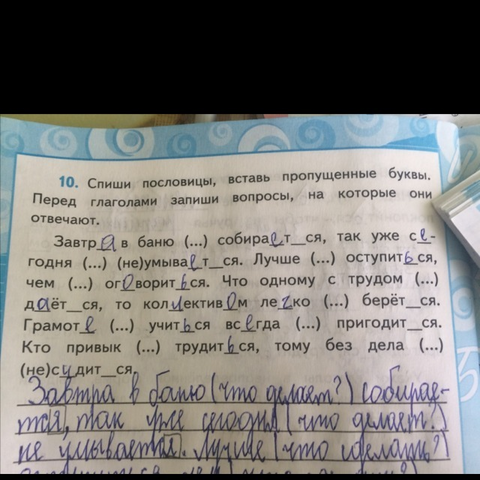 10. Спиши пословицы, вставь пропущенные буквы.
Перед глаголами запиши вопросы, на которые они
отвечают.
Завтр а в баню (...) собира е т__ся, так уже с е -
годня (...) (не)умыва е т__ся. Лучше (...) оступит ь ся,
чем (...) ог о ворит ь ся. Что одному с трудом (...)
д а ёт__ся, то кол л ектив о м ле г ко (...) берёт__ся.
Грамот е (...) учит ь ся вс е гда (...) пригодит__ся.
Кто привык (...) трудит ь ся, тому без дела (...)
(не)с и дит__ся.
Завтра в баню (что делает?) собирае-
тся, так уже сегодня (что делает?)
не умывается. Лучше (что сделать?)